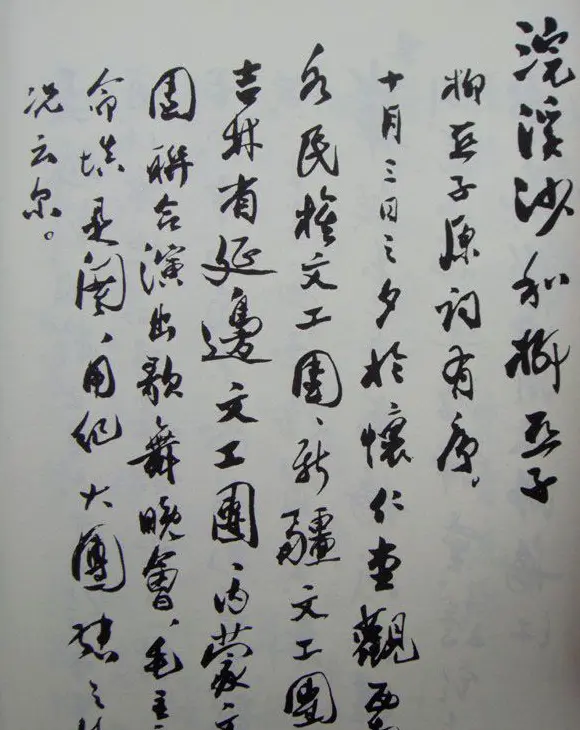 浣溪沙和柳亚子
柳亚子原词有序。
十月三日之夕於懷仁堂觀西
各民族文工團、新疆文工團
吉林省延邊文工團、内蒙文
團聯合演出歌舞晚會、毛主
命填是闋、用纪大團結之
况云尔。